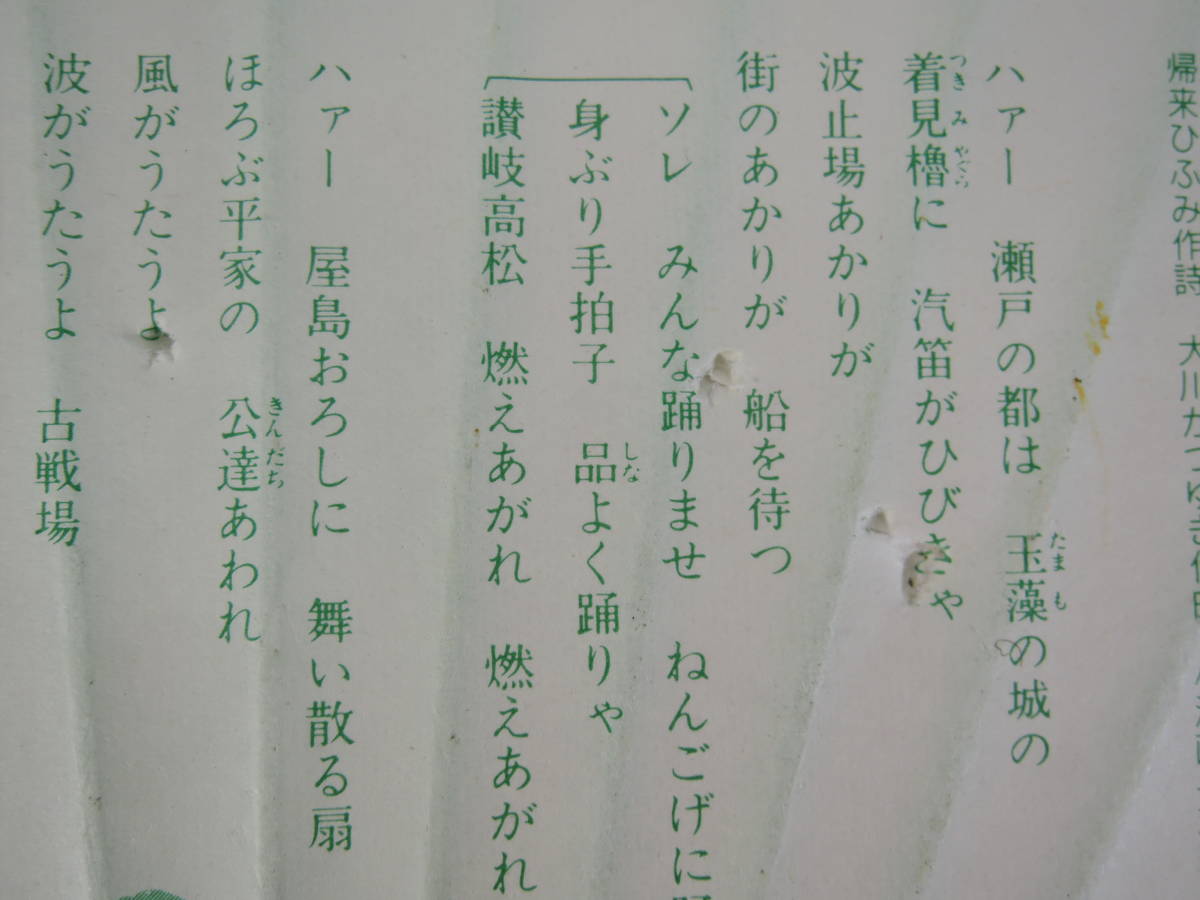 帰来ひふみ作詩 大川かつゆき作曲
ハァー 瀬戸の都は 玉藻の城の
着見櫓に 汽笛がひびきゃ
波止場あかりが
街のあかりが 船を待つ
ソレ みんな踊りませ ねんごげに
身ぶり手拍子 品よく踊りゃ
讃岐高松 燃えあがれ 燃えあがれ
ハァー 屋島おろしに 舞い散る扇
ほろぶ平家の 公達あわれ
風がうたうよ
波がうたうよ 古戦場